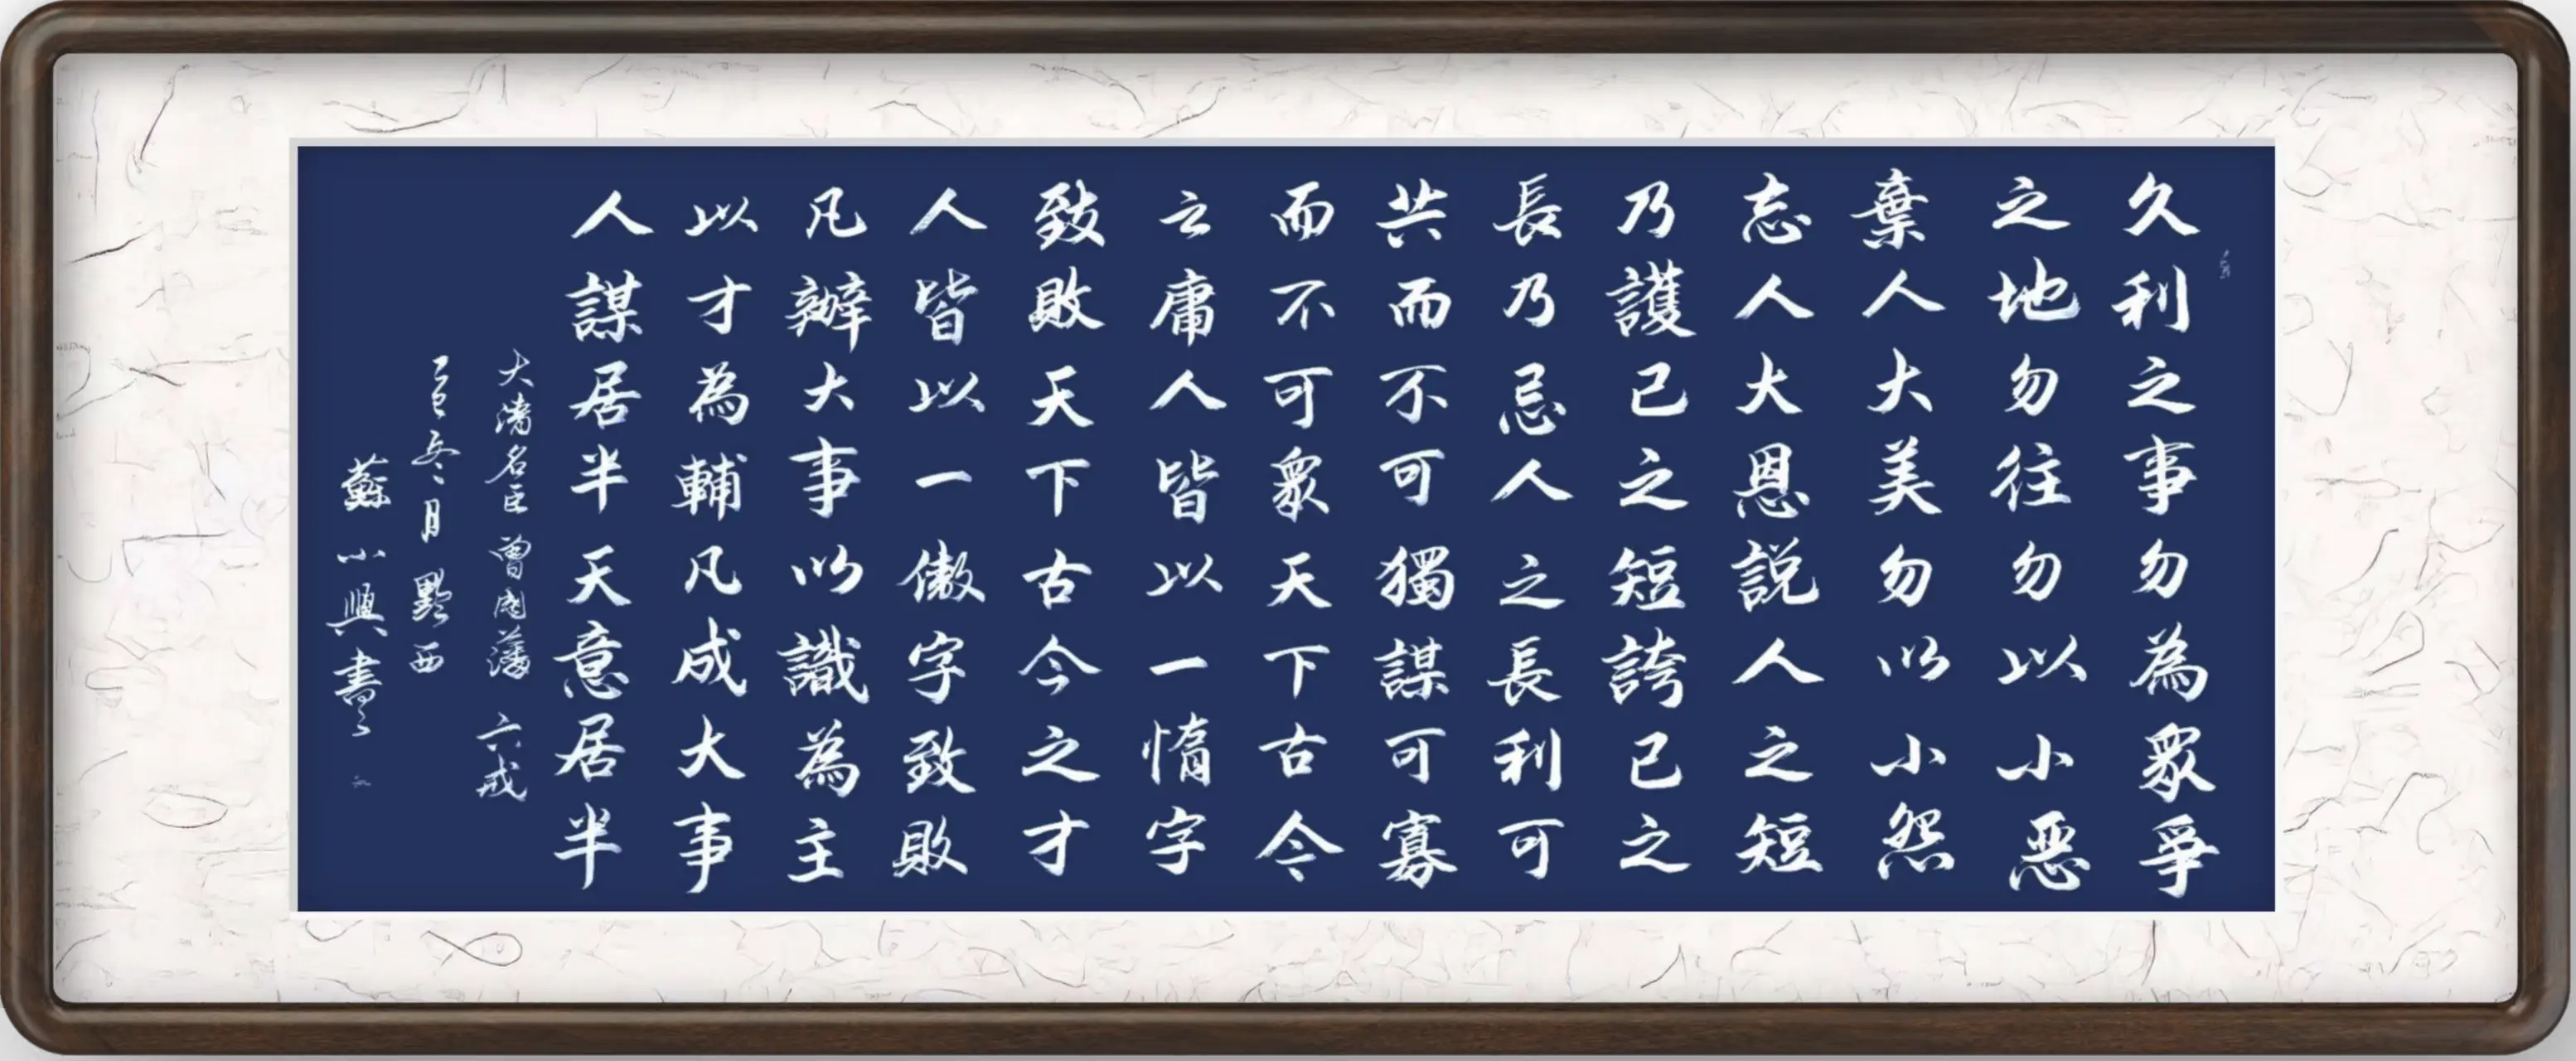 久利之事勿為衆爭
之地勿往勿以小惡
棄人大美勿以小怨
忘人大恩説人之短
乃護己之短誇己之
長乃忌人之長利可
共而不可獨謀可寡
而不可衆天下古今
之庸人皆以一惰字
致敗天下古今之才
人皆以一傲字致敗
凡辦大事以識為主
以才為輔凡成大事
人謀居半天意居半
大清名臣曾國藩六戒
冬月黟西
蘇小興書